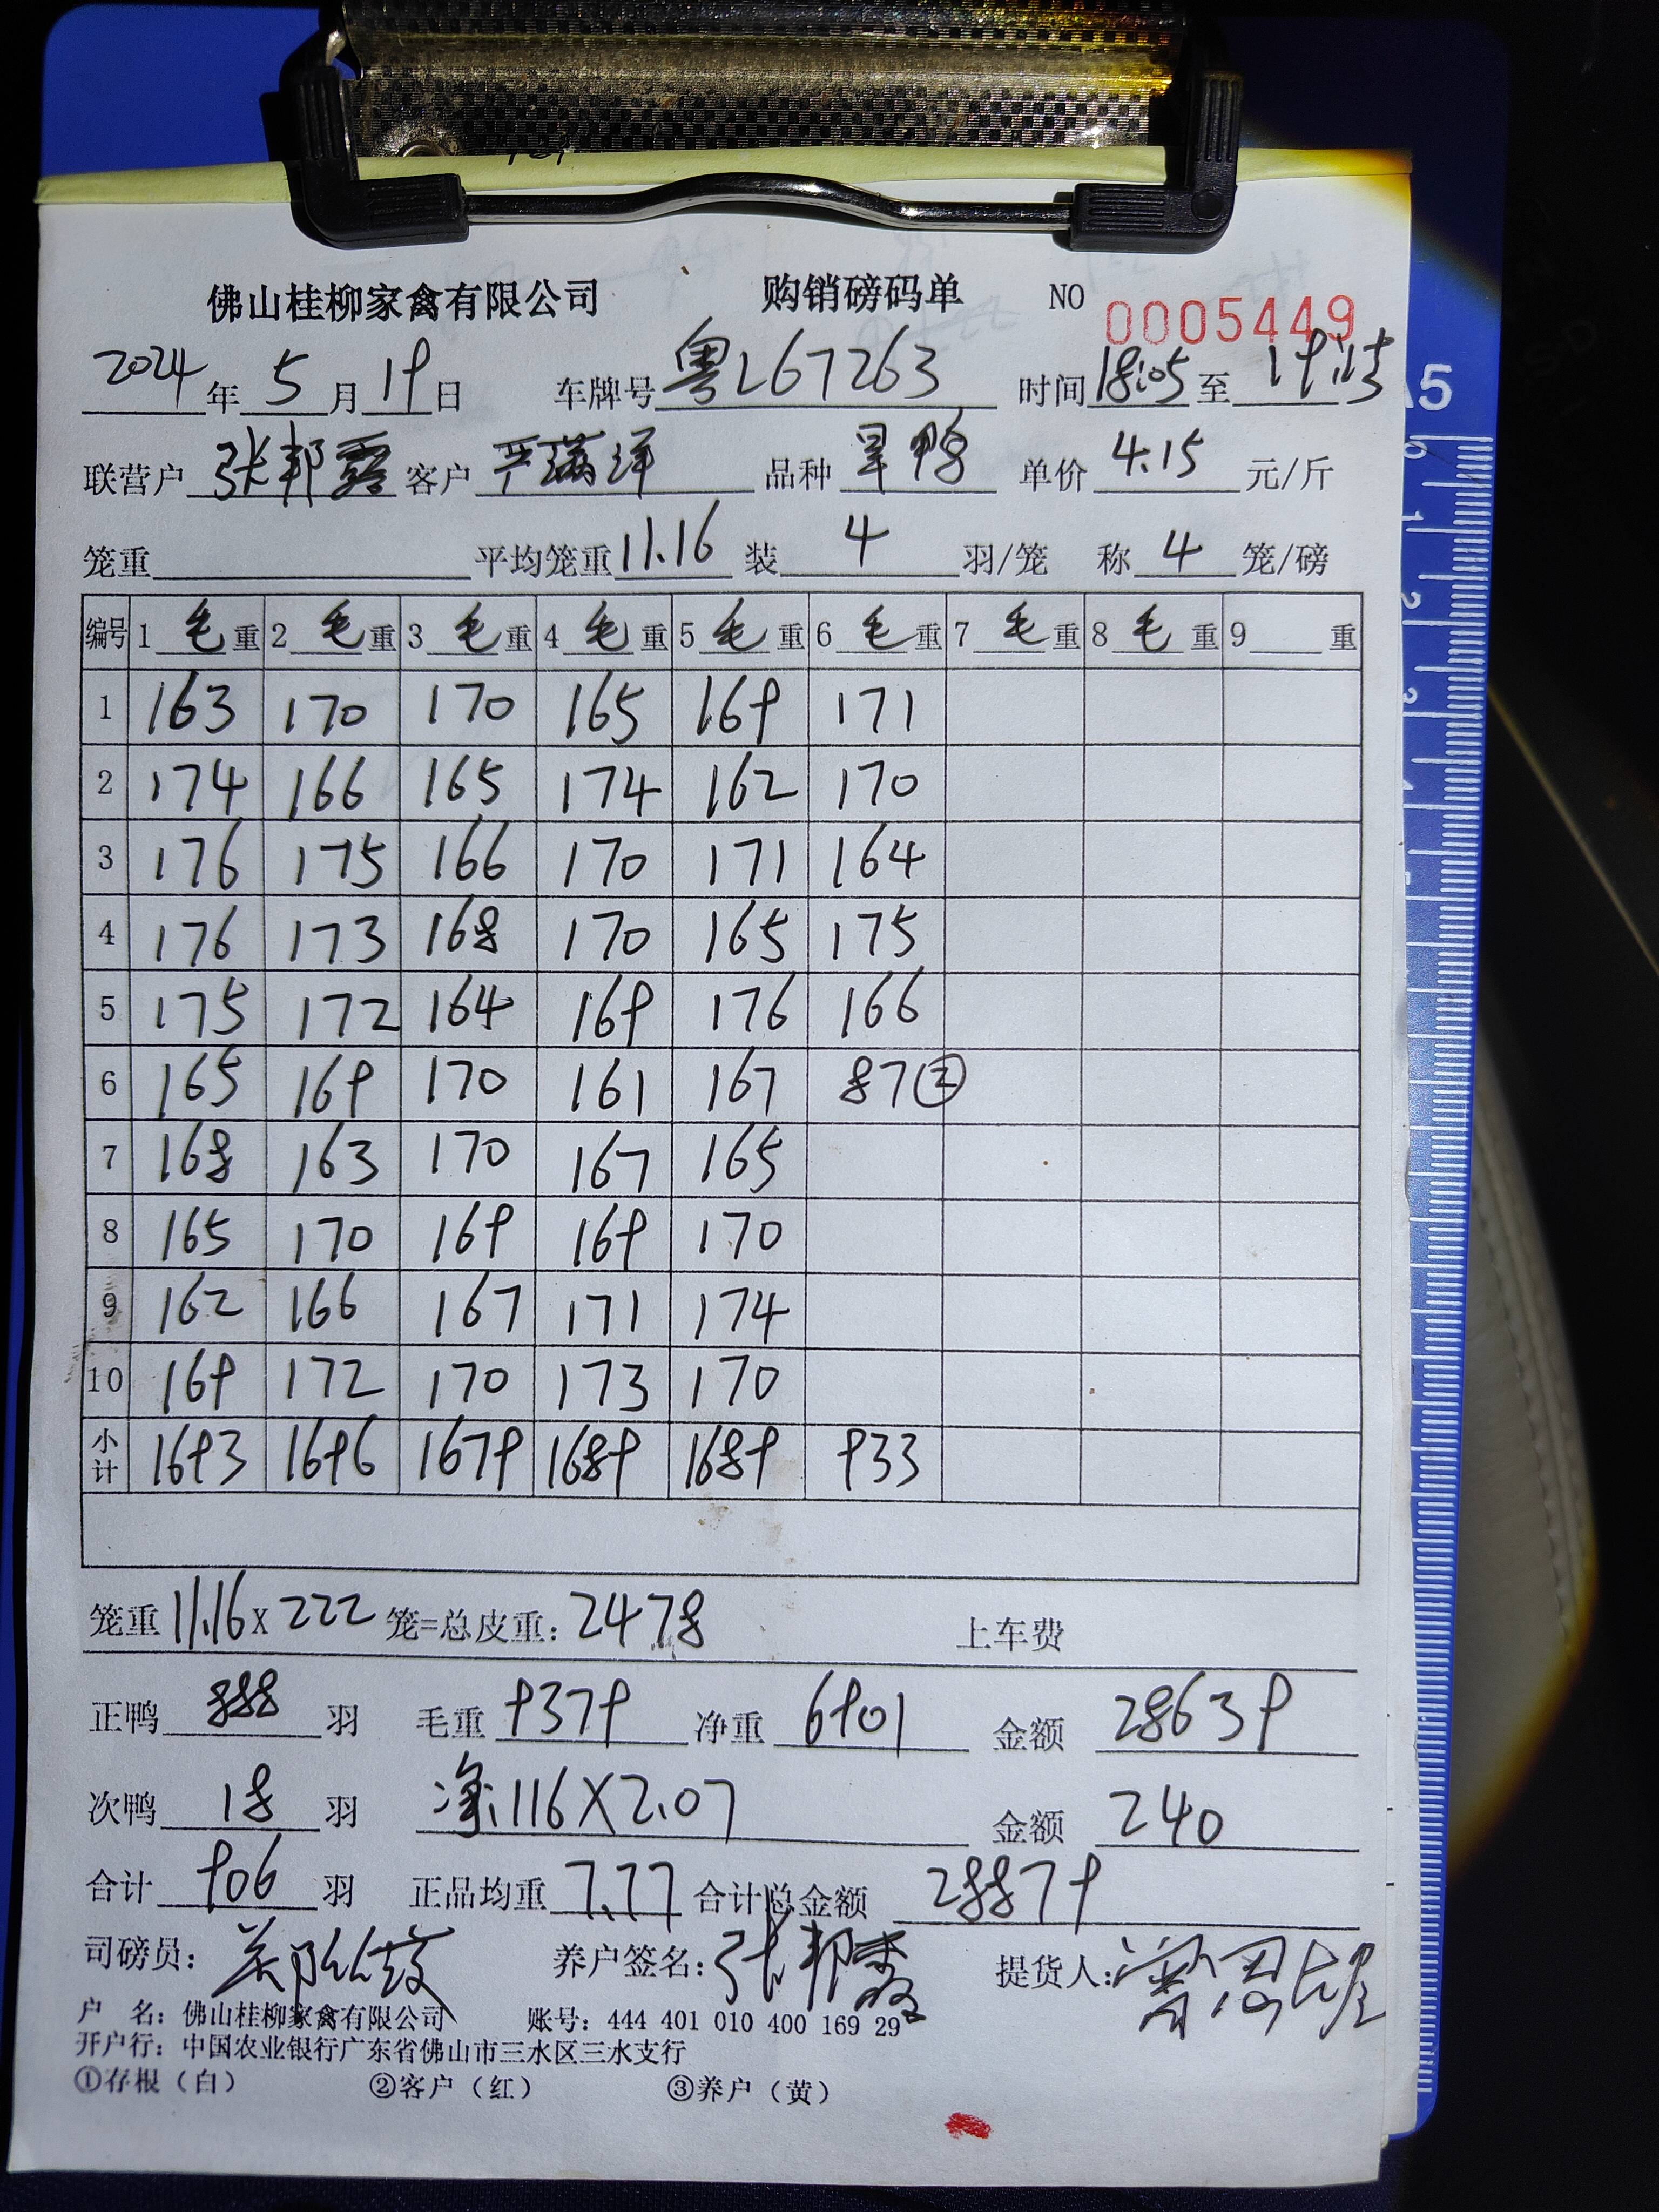 佛山桂柳家禽有限公司 购销磅码单 NO 0005449
2024年5月19日 车牌号粤L67263 时间18:05至19:15
联营户 张邦露 客户 严满洋 品种 旱鸭 单价 4.15 元/斤
笼重 平均笼重11.16 装 4 羽/笼 称 4 笼/磅
编号 1 毛 重 2 毛 重 3 毛 重 4 毛 重 5 毛 重 6 毛 重 7 毛 重 8 毛 重 9 重
1 163 170 170 165 169 171
2 174 166 165 174 162 170
3 176 175 166 170 171 164
4 176 173 168 170 165 175
5 175 172 164 169 176 166
6 165 169 170 161 167 87②
7 168 163 170 167 165
8 165 170 169 169 170
9 162 166 167 171 174
10 169 172 170 173 170
小计 1693 1696 1679 1689 1689 933
笼重11.16×222 笼=总皮重:2478 上车费
正鸭 888 羽 毛重 9379 净重 6901 金额 28639
次鸭 18 羽 净:116×2.07 金额 240
合计 906 羽 正品均重 7.77 合计总金额 28879
司磅员: 养户签名:张邦露 提货人:
户 名:佛山桂柳家禽有限公司 账号:444 401 010 400 169 29
开户行:中国农业银行广东省佛山市三水区三水支行
①存根(白) ②客户(红) ③养户(黄)
A5